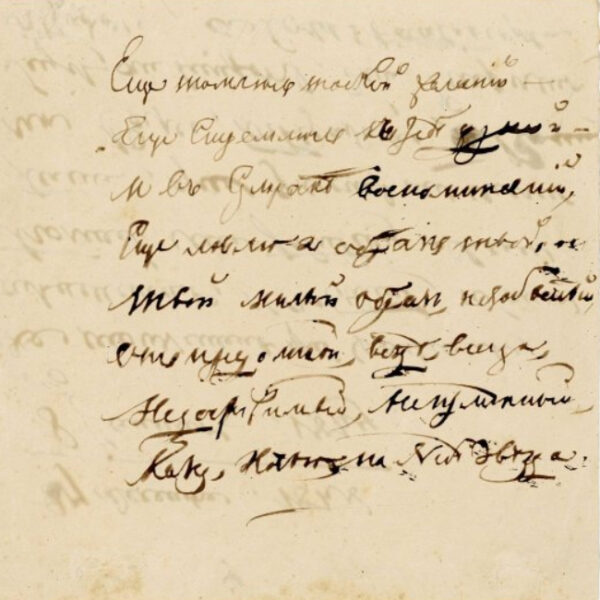 Еще томлюсь тоской желаній —
Еще стремлюсь къ тебѣ душой —
И въ сумракѣ воспоминаній,
Еще ловлю я образъ твой,
твой милый образъ, незабвенный
онъ предо мной, вездѣ, всегда,
Недостижимый, неизмѣнный,
Какъ ночью на небѣ звѣзда.